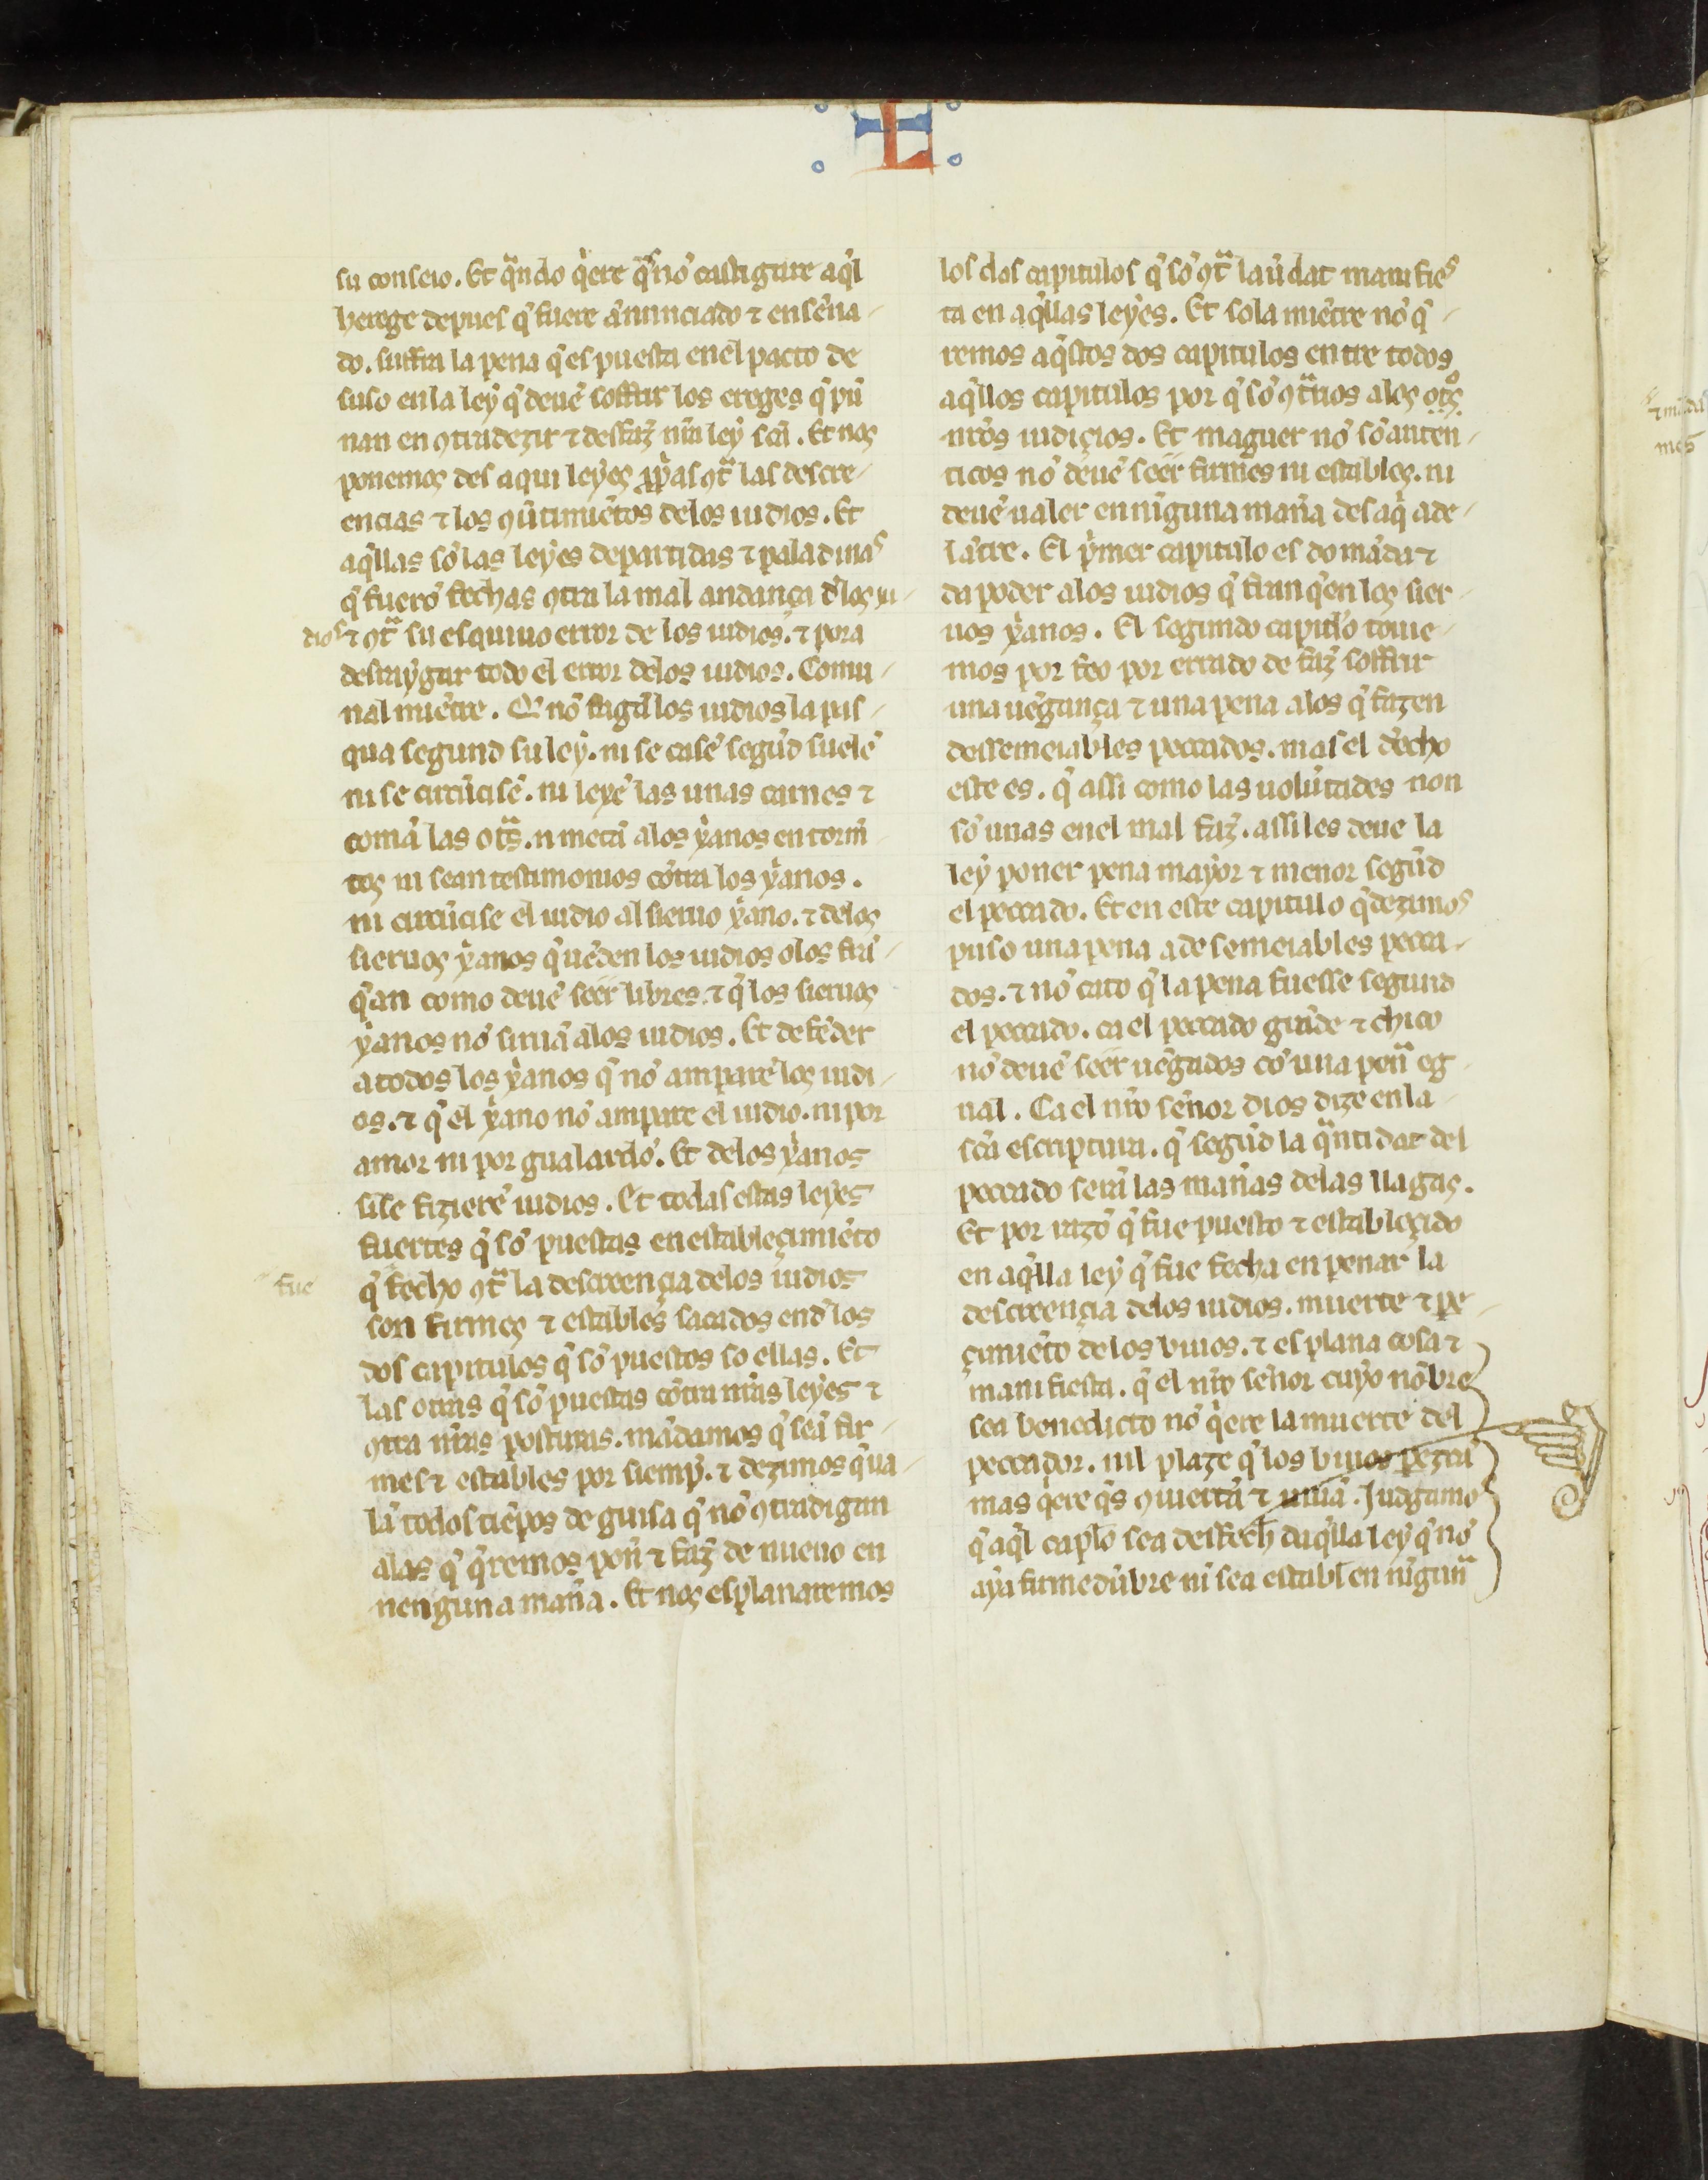 L
su conseio. Et q̃ndo q̃ere q̃s no᷈ castigare aq̃l
herege depues q̃ fuere a᷈nunciado ⁊ ense᷈na-
do. suffra la pena q̃ es puesta enel pacto de
suso enla ley q̃ deue᷈ soffrir los ereges q̃ pu᷈
nan en ꝯtradezir ⁊ desfaz̃ nr̃a ley sc̃a. Et nos
ponemos des aqui leyes ꝯt̃ las descre-
encias ⁊ los ꝯũtimie᷈tos delos iudios. Et
aq̃llas so᷈ las leyes departidas ⁊ paladinas
q̃ fuero᷈ fechas ꝯtra la mal andança d̃los iu-
dios ⁊ ꝯt̃ su esquiuo error de los iudios. ⁊ pora
desraygar todo el error delos iudios. Comu-
nal mie᷈tre. Q̃ no᷈ faga᷈ los iudios la pas-
qua segund su ley. ni se case᷈ segu᷈d suele᷈
ni se circu᷈cise᷈. ni lexe᷈ las unas carnes ⁊
coma᷈ las ot̃s. n meta᷈ alos xp̃anos en torm᷈
tos ni sean testimonios co᷈tra los xp̃anos.
ni circu᷈cise el iudio al sieruo xp̃ano. ⁊ delos
sieruos xp̃anos q̃ ue᷈den los iudios olos fra᷈-
q̃an como deue᷈ seer libres. ⁊ q̃ los sieruos
xp̃anos no᷈ sirua᷈ alos iudios. Et defe᷈der
a todos los xp̃anos q̃ no᷈ ampare᷈ los iudi-
os. ⁊ q̃ el xp̃ano no᷈ ampare el iudio. ni por
amor ni por gualardo᷈. Et delos xp̃anos
si se fiziere᷈ iudios. Et todas estas leyes
fuertes q̃ so᷈ puestas en estableçimie᷈to
fue
q̃ fecho ꝯt̃ la descreençia delos iudios
son firmes ⁊ estables sacados end̃ los
dos capitulos q̃ so᷈ puestos so ellas. Et
las otras q̃ so᷈ puestas co᷈tra nr̃as leyes ⁊
ꝯtra nr̃as posturas. ma᷈damos q̃ sea᷈ fir-
mes ⁊ estables por siemp̃. ⁊ dezimos q̃ ua-
la᷈ todos tie᷈pos de guisa q̃ no᷈ ꝯtradigan
alas q̃ q̃remos pon̄ ⁊ faz̃ de nueuo en
nenguna man̄a. Et nos esplanaremos
los dos capitulos q̃ so᷈ ꝯt̃ la u᷈dat manifies
ta en aq̃llas leyes. Et sola mie᷈tre no᷈ q̃-
remos aq̃stos dos capitulos entre todos
aq̃llos capitulos por q̃ so᷈ ꝯt̃rios alos ot̃s
nr̃os iudiçios. Et maguer no᷈ so᷈ auten-
ticos no᷈ deue᷈ seer firmes ni estables. ni
deue᷈ ualer en ni᷈guna man̄a des aq̃ ade-
la᷈tre. El p̃mer capitulo es do ma᷈da ⁊
da poder alos iudios q̃ fran q̃en los sier-
uos xp̃anos. El segundo capitl̃o toue-
mos por feo por errado de faz̃ soffrir
una ue᷈gança ⁊ una pena alos q̃ fazen
dessemeiables peccados. mas el d̃echo
este es. q̃ assi como las uolu᷈tades non
so᷈ unas enel mal faz̃. assi les deue la
ley poner pena mayor ⁊ menor segu᷈d
el peccado. Et en este capitulo q̃ dezimos
puso una pena a desemeiables pecca-
dos. ⁊ no᷈ cato q̃ la pena fuesse segund
el peccado. ca el peccado gra᷈de ⁊ chico
no᷈ deue᷈ seer ue᷈gados co᷈ una pen̄ eg-
ual. Ca el nr̃o sen̄or dios dize en la
sc̃a escriptura. q̃ segu᷈d la q̃ntidat del
peccado sera᷈ las man̄as delas llagas.
Et por razo᷈ q̃ fue puesto ⁊ estableçido
en aq̃lla ley q̃ fue fecha en penar la
descreençia delos iudios. muerte ⁊ pe-
çimie᷈to de los biuos. ⁊ es plana cosa ⁊
manifiesta. q̃ el nr̃o sen̄or cuyo no᷈bre
sea benedicto no᷈ q̃ere la muerte del
peccador. nil plaze q̃ los biuos pezca᷈
mas q̃ere q̃s ꝯuierta᷈ ⁊ uiua᷈. Judgamos
q̃ aq̃l capl̃o sea desfech̃ daq̃lla ley q̃ no᷈
aya firmedu᷈bre ni sea establ̃ en ni᷈gun̄